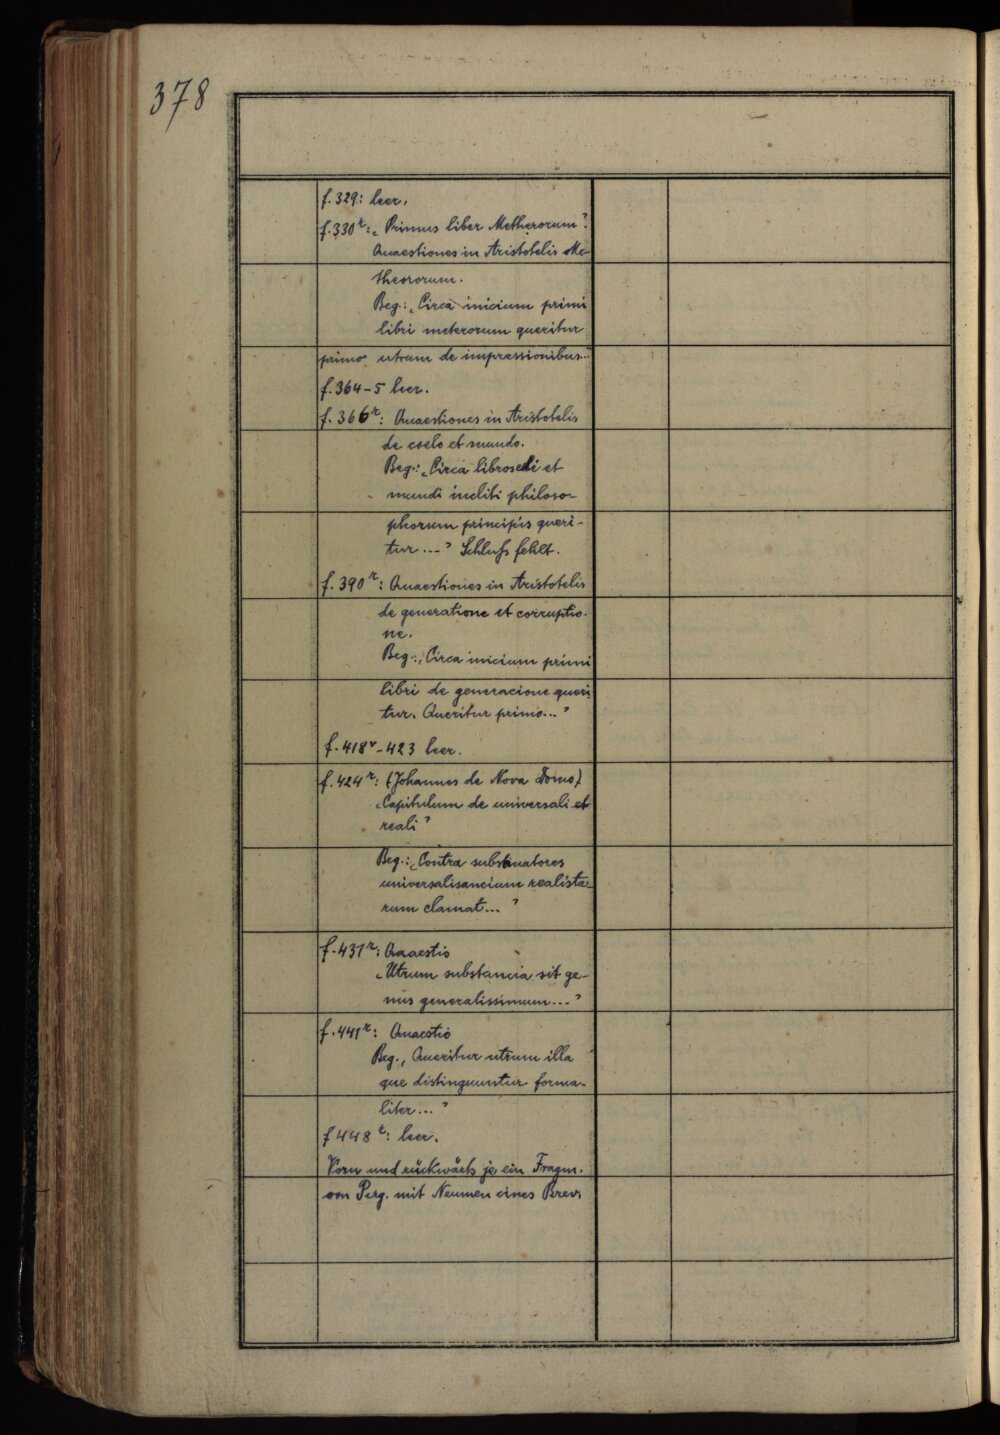 378
f. 329: leer.
f. 330r: „Primus liber Metherorum“.
Quaestiones in Aristotelis Me-
theororum.
Beg.: „Circa inicium primi
libri meterorum queritur
primo utrum de impressionibus..“
f. 364-5 leer.
f. 366r: Quaestiones in Aristotelis
de coelo et mundo.
Beg.: „Circa libros celi et
mundi incliti philoso-
phorum principis queri-
tur ...“ Schluss fehlt.
f. 390r: Quaestiones in Aristotelis
de generatione et corruptio-
ne.
Beg.: „Circa inicium primi
libri de generacione queri
tur. Queritur primo...“
f. 418v-423 leer.
f. 424r: (Johannes de Nova Domo)
„Capitulum de universali et
reali“
Beg.: „Contra
universalisancium realista-
rum clamat...“
f. 431r: Quaestio
„Utrum substancia sit ge-
nus generalissimum...“
f. 441r: Quaestio
Beg. „Queritur utrum illa
que distinguuntur forma-
liter...“
f 448r: leer.
Vorn und rückwärts je ein Fragm.
von Perg. mit Neumen eines Brev.